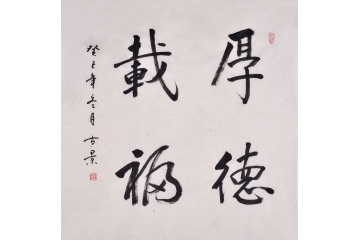 厚德
載福
癸巳年冬月古景